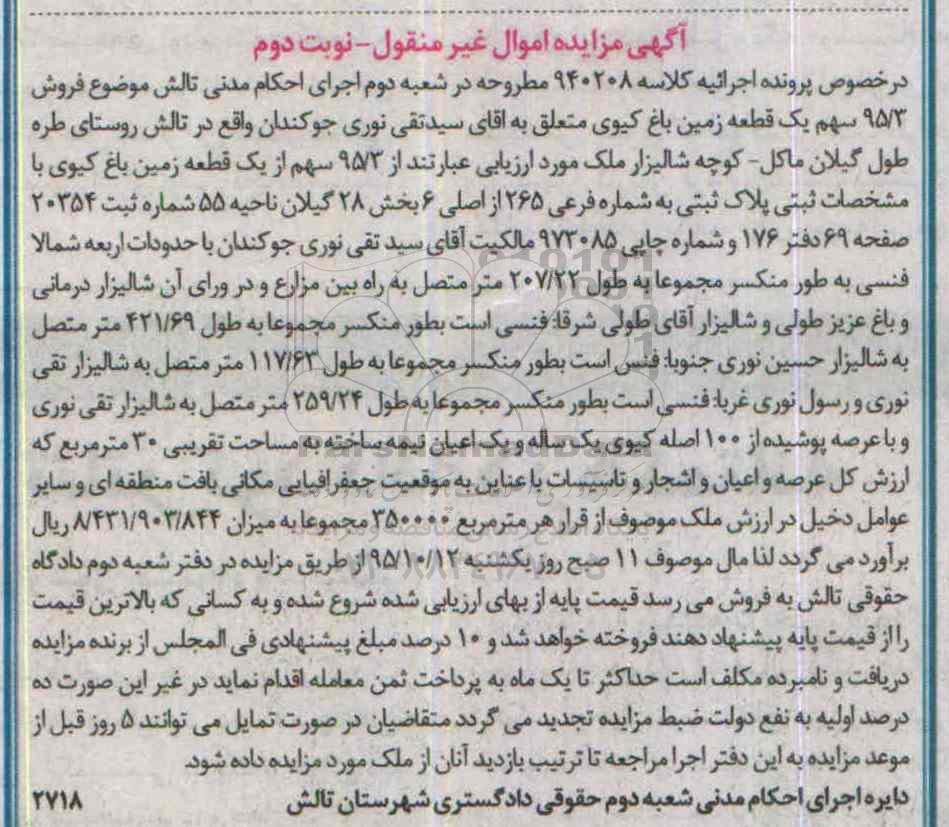 آگهی مزایده اموال غیر منقول-نوبت دوم
درخصوص پرونده اجرائیه کلاسه ۹۴۰۲۰۸ مطروحه در شعبه دوم اجرای احکام مدنی تالش موضوع فروش
۹۵/۳ سهم یک قطعه زمین باغ کیوی متعلق به اقای سیدتقی نوری جوکندان واقع در تالش روستای طره
طول گیلان ماکل- کوچه شالیزار ملک مورد ارزیابی عبارتند از ۹۵/۳ سهم از یک قطعه زمین باغ کیوی با
مشخصات ثبتی پلاک ثبتی به شماره فرعی ۲۶۵ از اصلی ۶ بخش ۲۸ گیلان ناحیه ۵۵ شماره ثبت ۲۰۳۵۴
صفحه ۶۹ دفتر ۱۷۶ و شماره چاپی ۹۷۳۰۸۵ مالکیت آقای سید تقی نوری جوکندان با حدودات اربعه شمالا
فنسی به طور منکسر مجموعا به طول ۲۰۷/۲۲ متر متصل به راه بین مزارع و در ورای آن شالیزار درمانی
و باغ عزیز طولی و شالیزار آقای طولی شرقا: فنسی است بطور منکسر مجموعا به طول ۴۲۱/۶۹ متر متصل
به شالیزار حسین نوری جنوبا: فنس است بطور منکسر مجموعا به طول ۱۱۷/۶۳ متر متصل به شالیزار تقی
نوری و رسول نوری غربا: فنسی است بطور منکسر مجموعا به طول ۲۵۹/۲۴ متر متصل به شالیزار تقی نوری
و با عرصه پوشیده از ۱۰۰ اصله کیوی یک ساله و یک اعیان نیمه ساخته به مساحت تقریبی ۳۰ مترمربع که
ارزش کل عرصه و اعیان و اشجار و تاسیسات با عناین به موقعیت جعفرافیایی مکانی بافت منطقه ای و سایر
عوامل دخیل در ارزش ملک موصوف از قرار هر مترمربع ۳۵۰۰۰۰ مجموعا به میزان ۸/۴۳۱/۹۰۳/۸۴۴ ریال
برآورد می گردد لذا مال موصوف ۱۱ صبح روز یکشنبه ۹۵/۱۰/۱۲ از طریق مزایده در دفتر شعبه دوم دادگاه
حقوقی تالش به فروش می رسد قیمت پایه از بهای ارزیابی شده شروع شده و به کسانی که بالاترین قیمت
را از قیمت پایه پیشنهاد دهند فروخته خواهد شد و ۱۰ درصد مبلغ پیشنهادی فی المجلس از برنده مزایده
دریافت و نامبرده مکلف است حداکثر تا یک ماه به پرداخت ثمن معامله اقدام نماید در غیر این صورت ده
درصد اولیه به نفع دولت ضبط مزایده تجدید می گردد متقاضیان در صورت تمایل می توانند ۵ روز قبل از
موعد مزایده به این دفتر اجرا مراجعه تا ترتیب بازدید آنان از ملک مورد مزایده داده شود.
دایره اجرای احکام مدنی شعبه دوم حقوقی دادگستری شهرستان تالش ۲۷۱۸